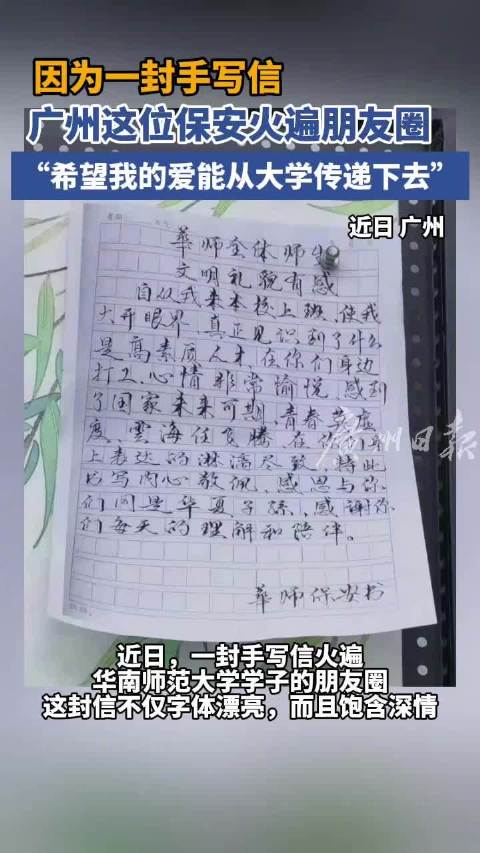 因为一封手写信
广州这位保安火遍朋友圈
“希望我的爱能从大学传递下去”
近日 广州
華师全体师生
文明礼貌有感
自从我来本校上班，使我
大开眼界，真正见识到了什么
是高素质人才，在你们身边
打工，心情非常愉悦，感到
了国家未来可期，青春
度，雲海任飞腾在你
上表达的淋漓尽致，特此
书写内心敬佩，感恩与你
们同是华夏子孫，感谢你
们每天的理解和陪伴。
華师保安书
廣州日報
近日，一封手写信火遍
华南师范大学学子的朋友圈
这封信不仅字体漂亮，而且饱含深情